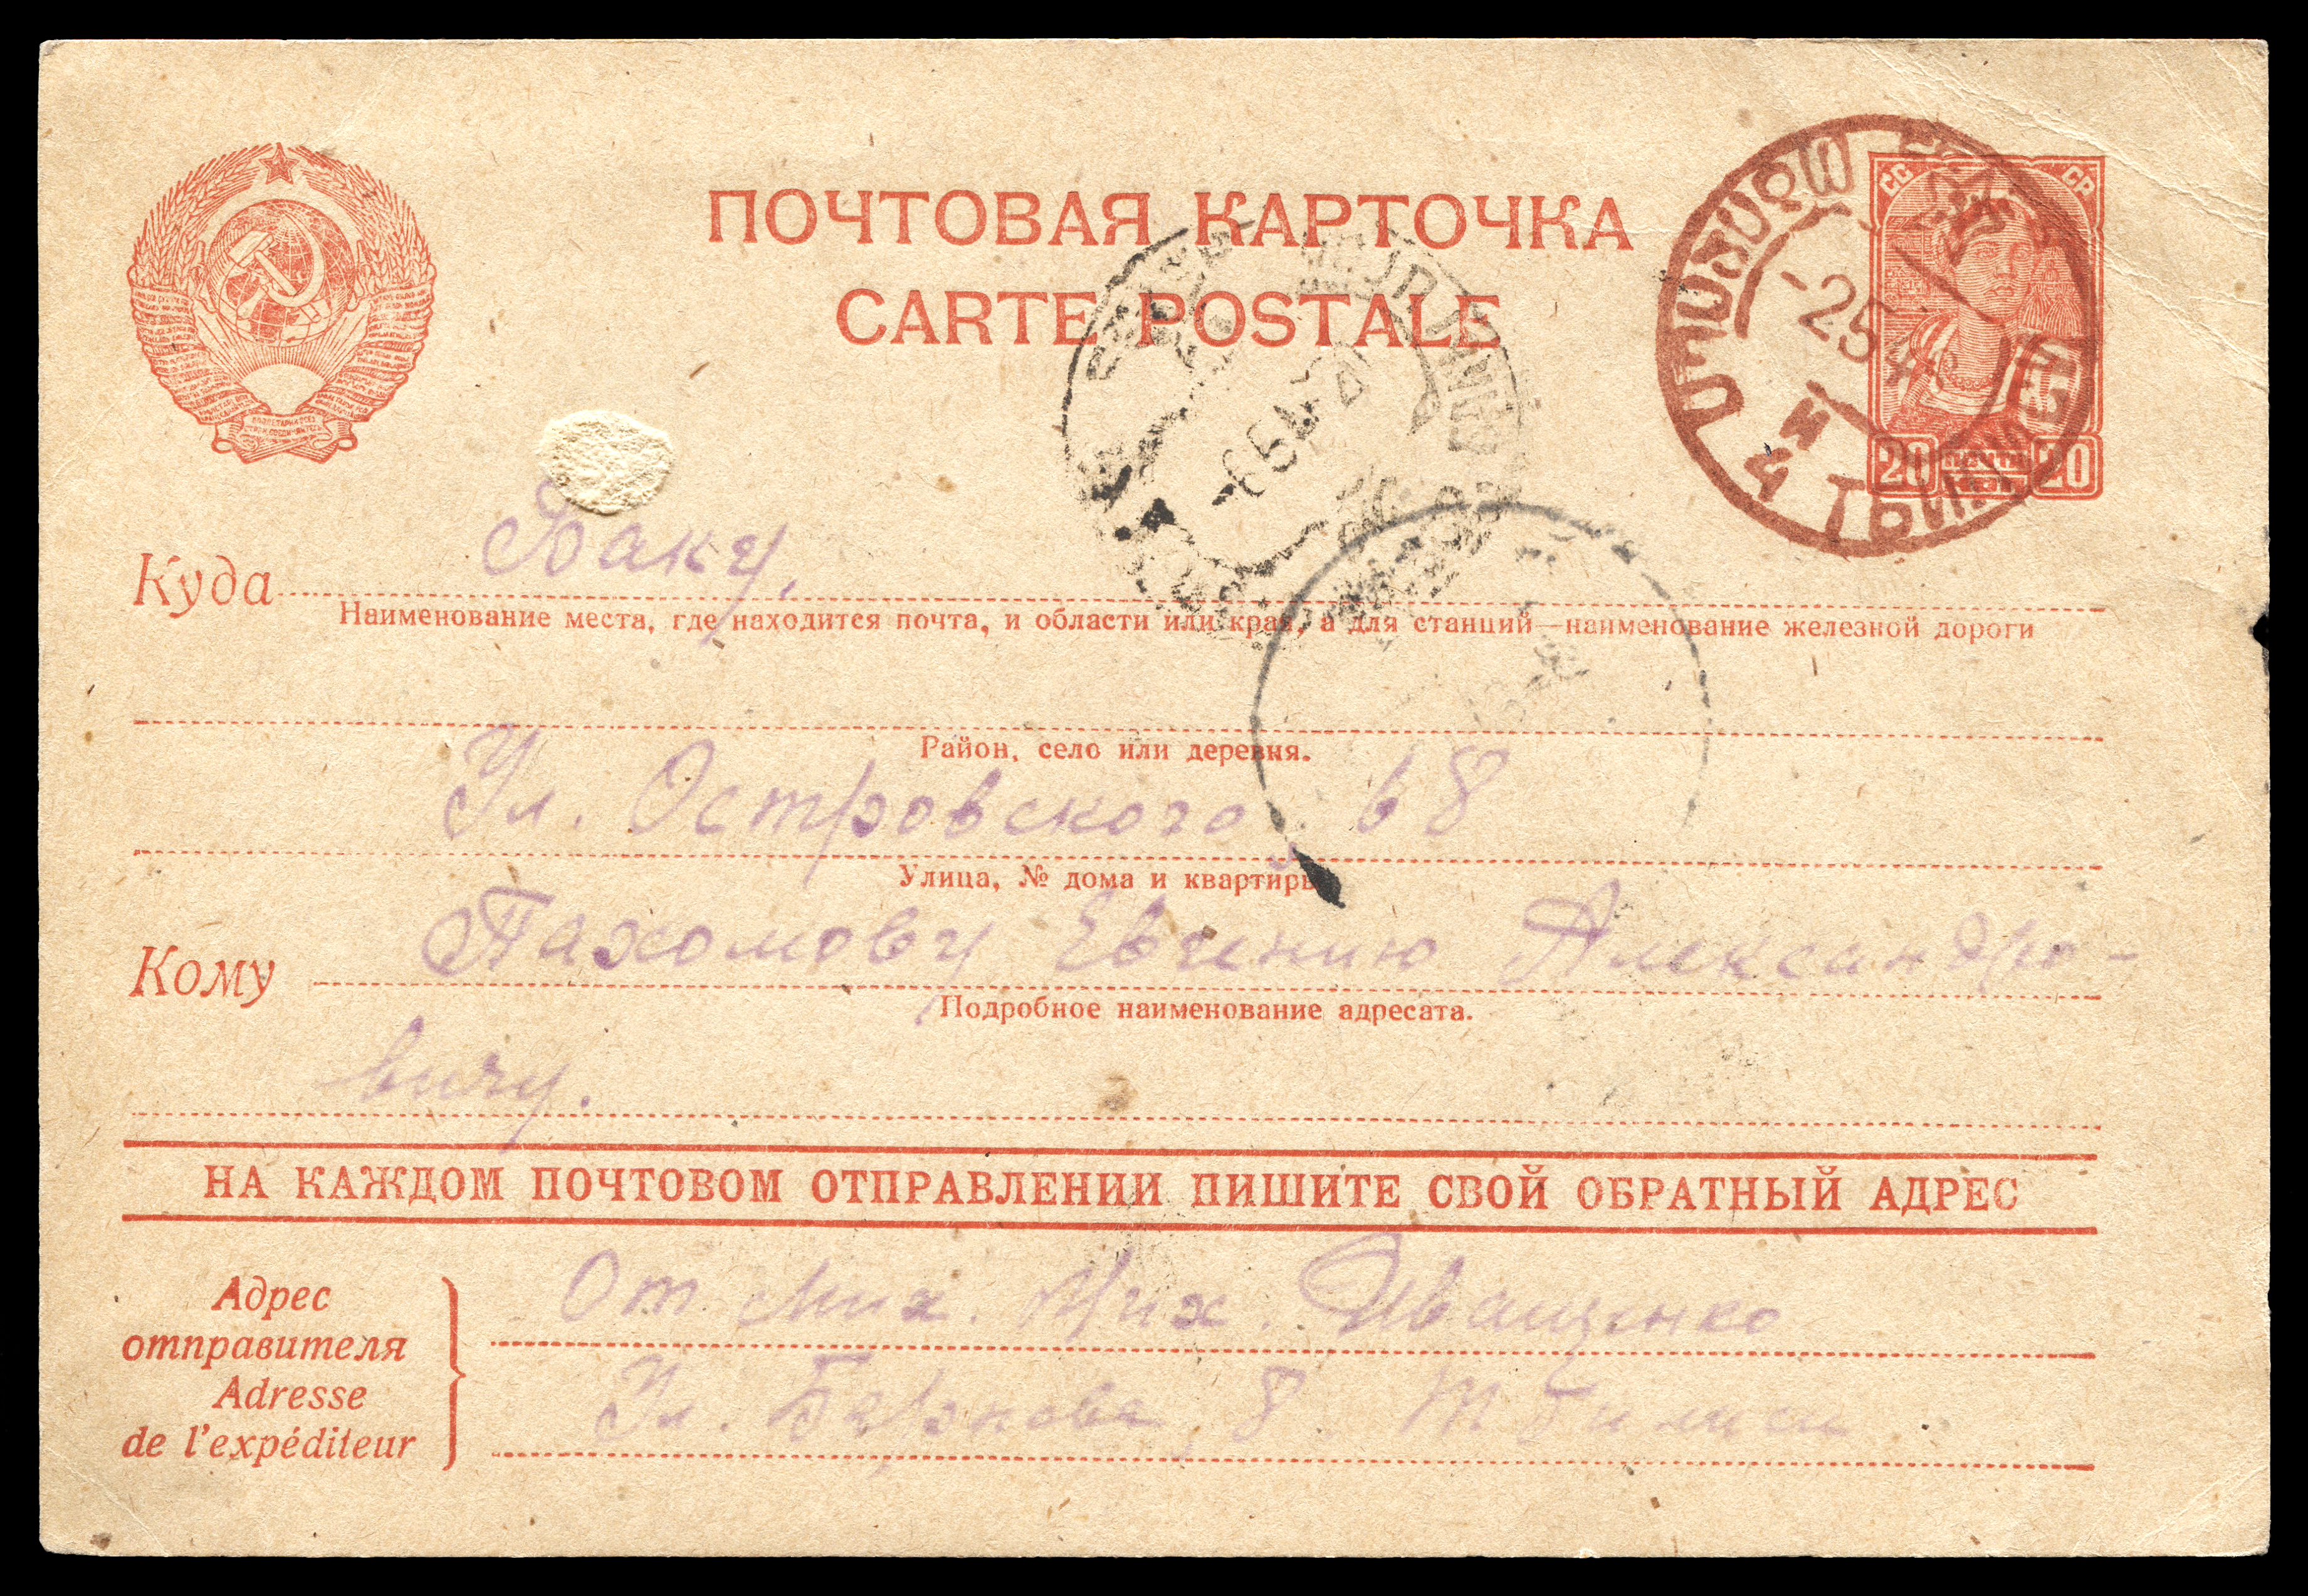 ПОЧТОВАЯ КАРТОЧКА
CARTE POSTALE
СС СР
-2 5 4
-6 5 4
20 ПОЧТА 20
Куда Баку,
Наименование места, где находится почта, и области или края, а для станций—наименование железной дороги
Район, село или деревня.
Ул. Островского 68
Улица, № дома и квартиры
Кому Пахомову Евгению Александро-
Подробное наименование адресата.
вичу.
НА КАЖДОМ ПОЧТОВОМ ОТПРАВЛЕНИИ ПИШИТЕ СВОЙ ОБРАТНЫЙ АДРЕС
Адрес
отправителя
Adresse
de l'expéditeur
От Мих. Мих. Иващенко
Ул. 8. Тбилиси